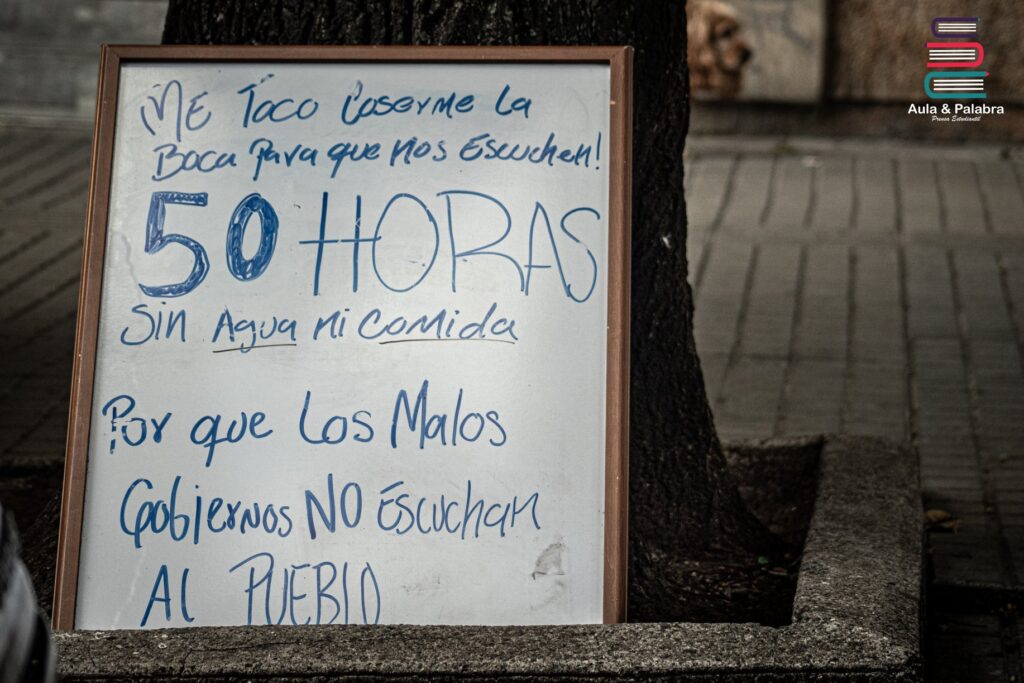 ME Toco Coserme La
Boca Para que nos Escuchen!
50 HORAS
Sin Agua ni Comida
Por que Los Malos
Gobiernos NO Escuchan
Al PUEBlO
Aula & Palabra
Prensa Estudiantil